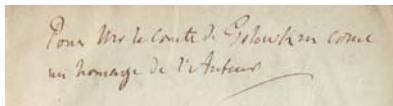 Pour Mr le Comte de Golowkin come
un homage de l'Auteur